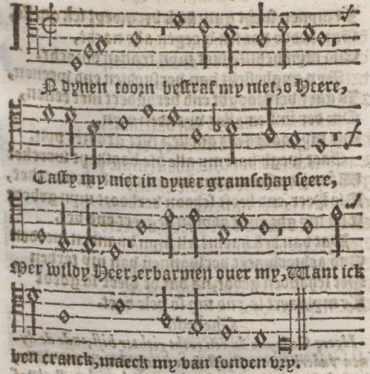 N dynen toorn bestraf my niet, o Heere,
Casty my niet in dyner gramschap seere,
Mer wildy Heer, erbarmen ouer my, Want ick
ben cranck, maeck my van sonden vry.